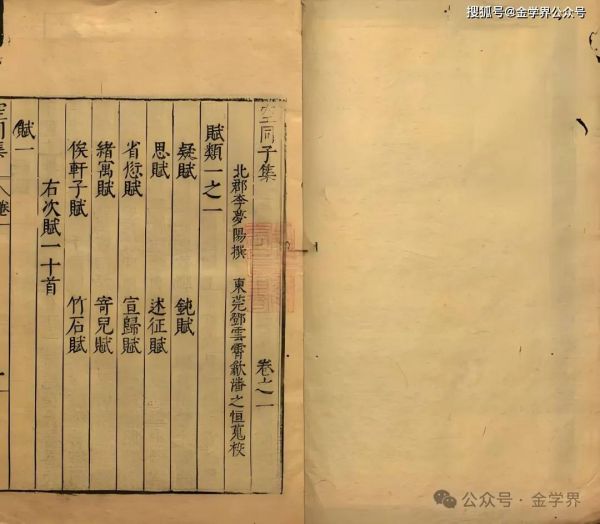 搜狐号@金学界公众号
空同子集 卷之一
北郡李夢陽撰 東莞鄧雲霄歙潘之恒蒐校
賦類一之一
疑賦 鈍賦
思賦 述征賦
省愆賦 宣歸賦
緒寓賦 寄兒賦
俟軒子賦 竹石賦
右次賦一十首
賦一
空同集 卷一
公众号·金学界